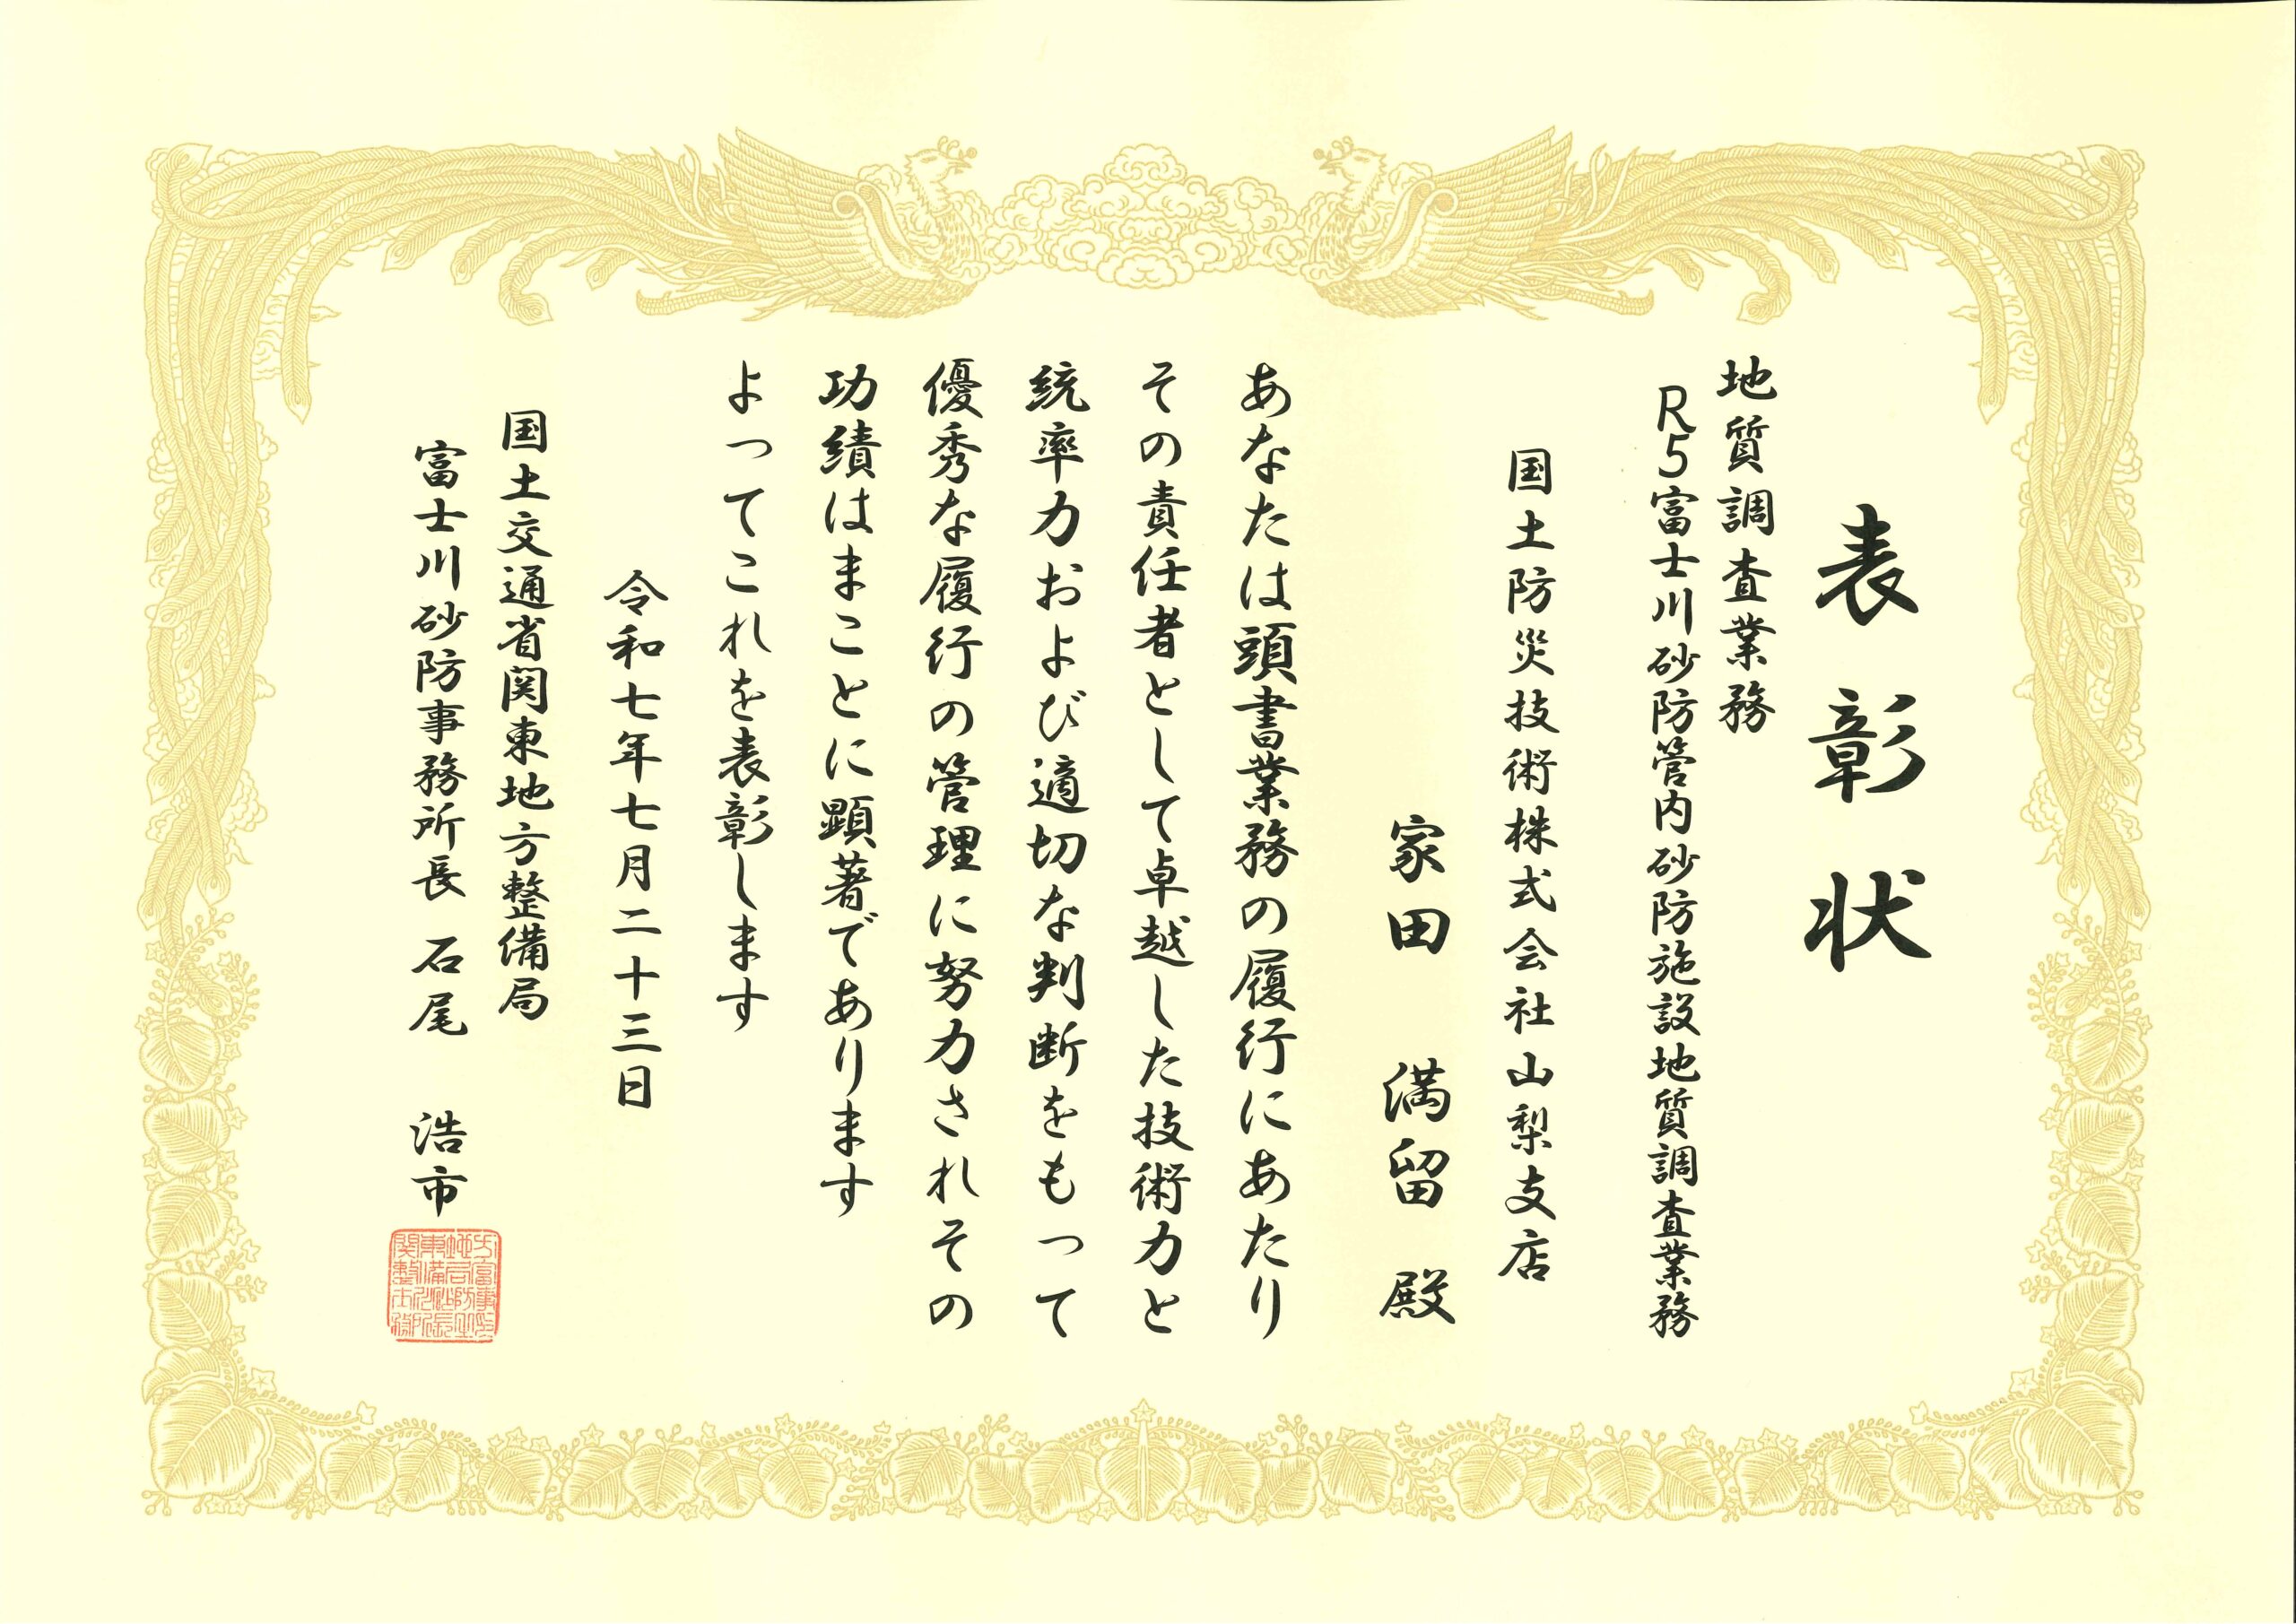 表彰状
地質調査業務
R5富士川砂防管内砂防施設地質調査業務
国土防災技術株式会社山梨支店
家田 満留 殿
あなたは頭書業務の履行にあたり
その責任者として卓越した技術力と
統率力および適切な判断をもって
優秀な履行の管理に努力されその
功績はまことに顕著であります
よってこれを表彰します
令和七年七月二十三日
国土交通省関東地方整備局
富士川砂防事務所長 石尾 浩市